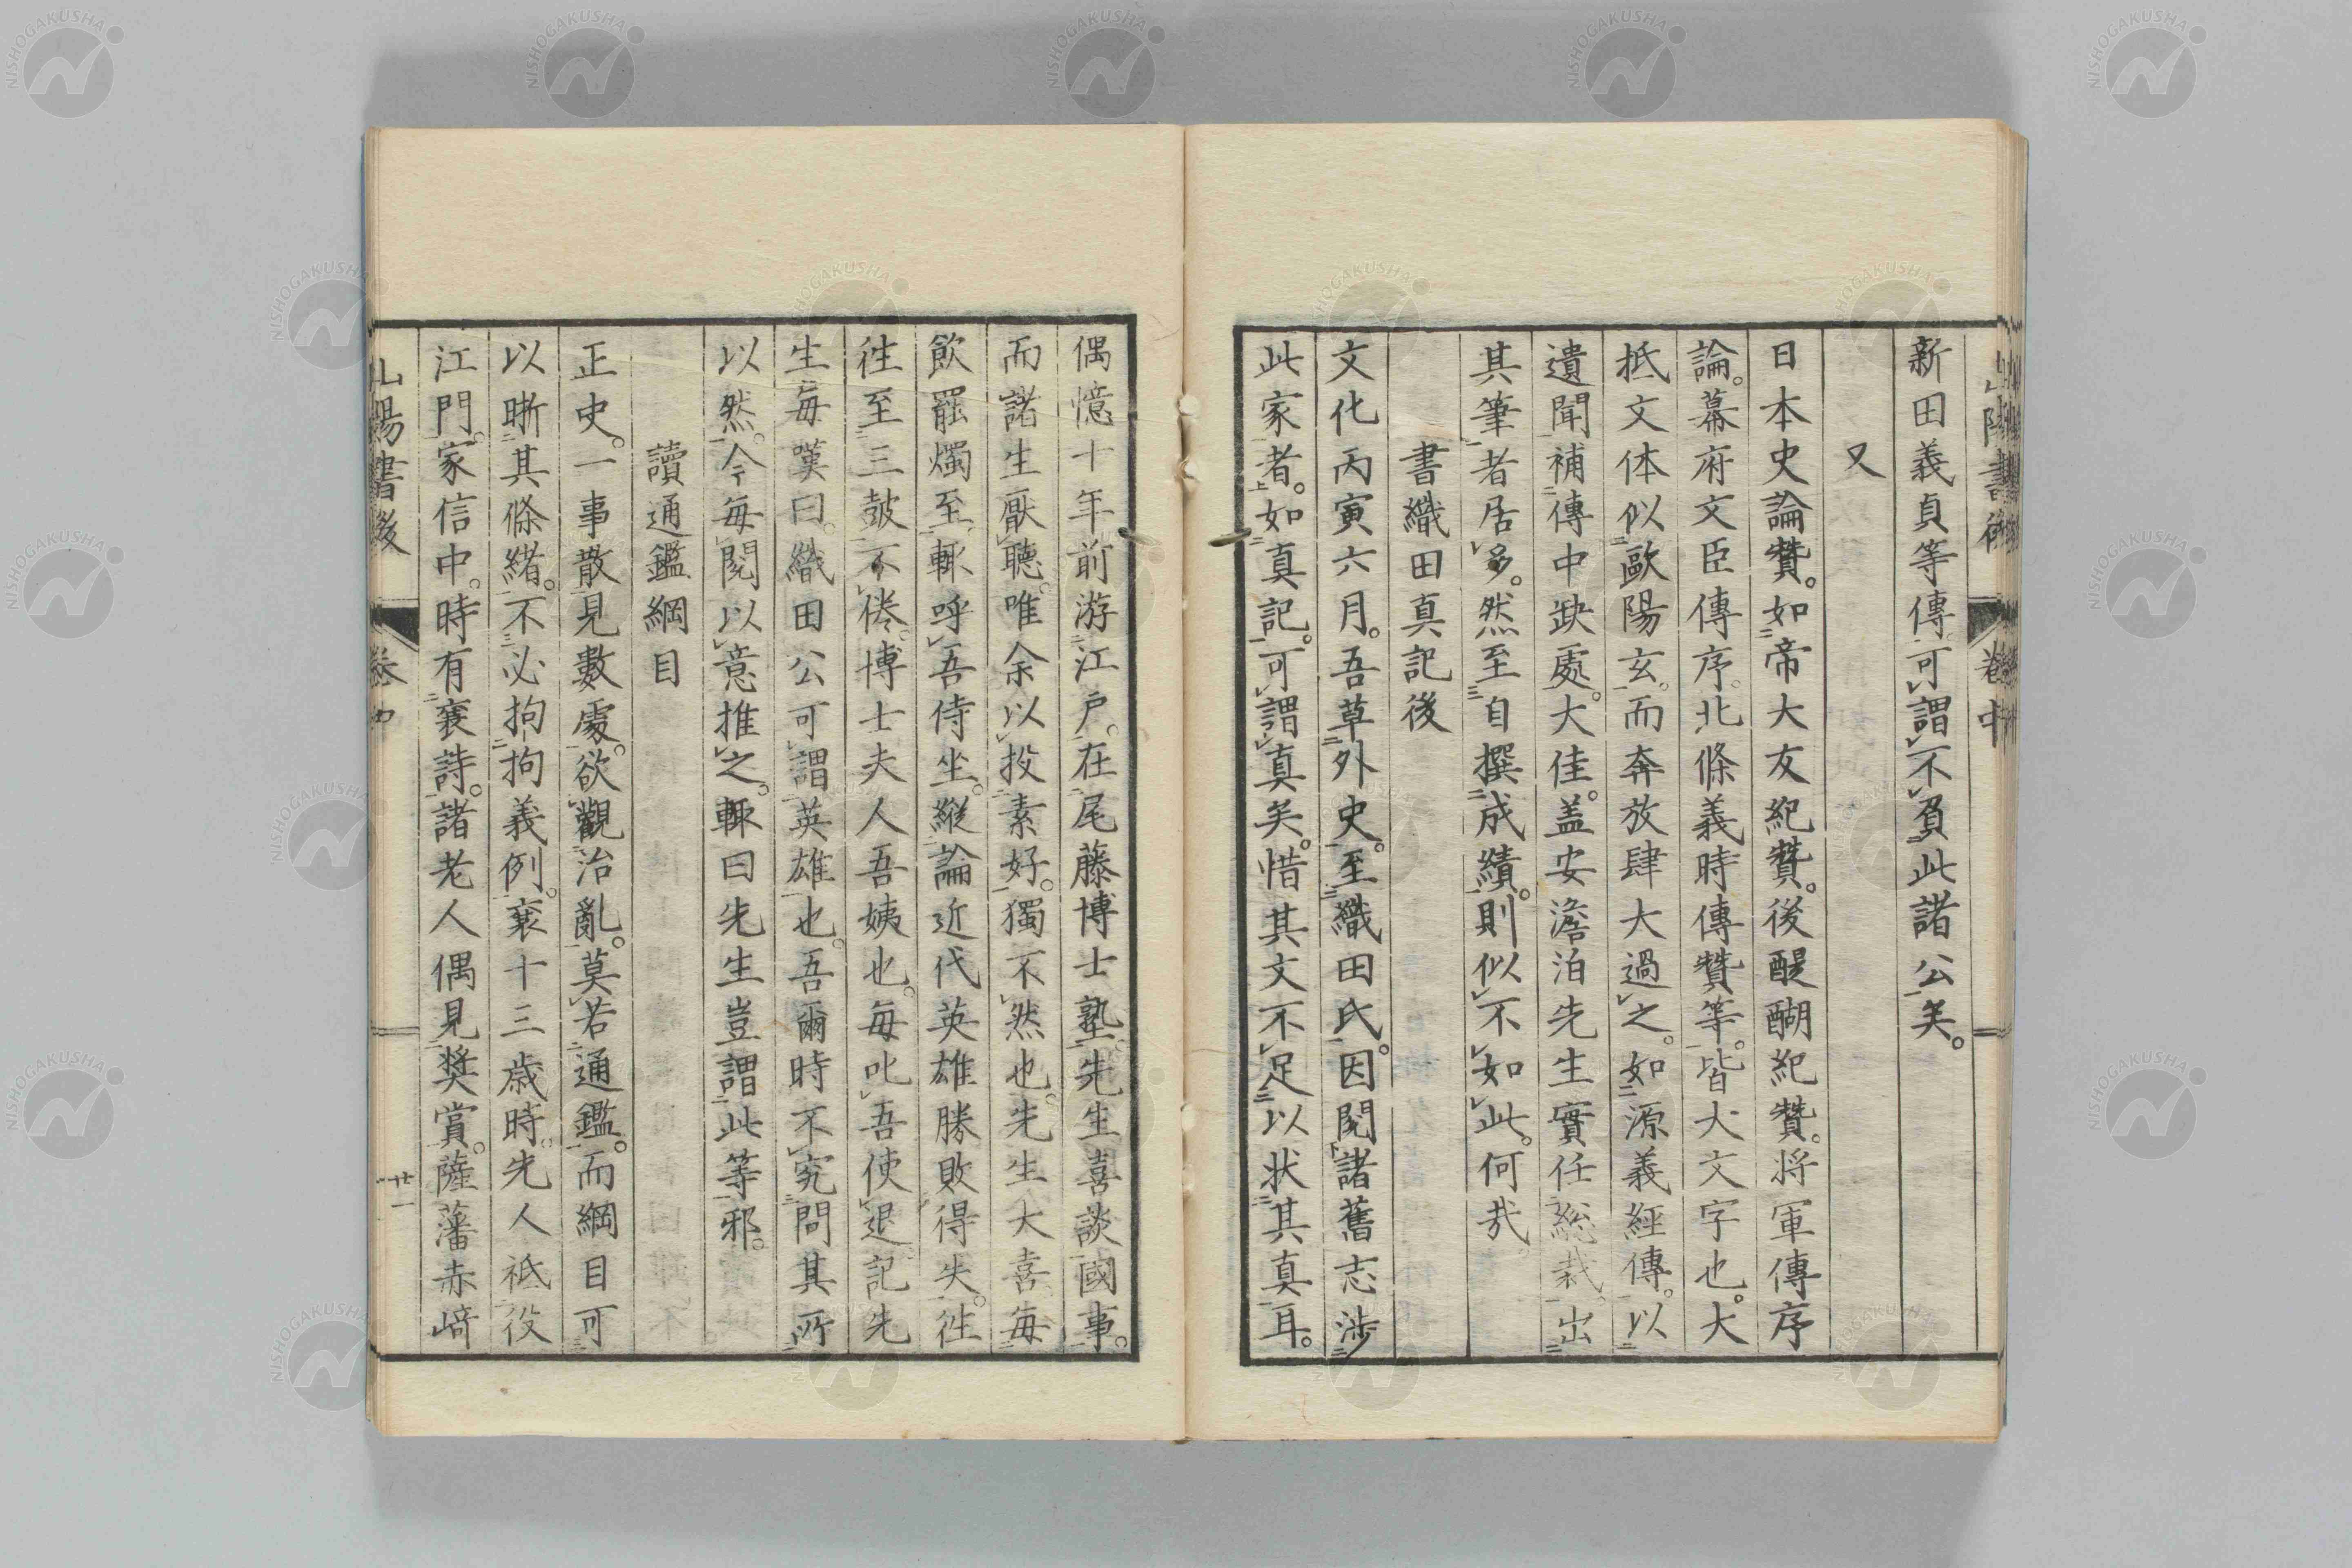 新田義貞等傳。可謂不負此諸公矣。
又
日本史論贊。如帝大友紀贊。後醍醐紀贊。将軍傳序
論。幕府文臣傳序。北條義時傳贊等。皆大文字也。大
抵文体似歐陽玄。而奔放肆大過之。如源義經傳。以
遺聞補傳中缺處。大佳。盖安澹泊先生實任総裁。出
其筆者居多。然至自撰成績。則似不如此。何哉
書織田真記後
文化丙寅六月。吾草外史。至織田氏。因閱諸舊志渉
此家者。如真記。可謂真矣。惜其文不足以状其真耳。
偶憶十年前游江戸。在尾藤博士塾。先生喜談國事。
而諸生厭聽。唯余以投素好。獨不然也。先生大喜。每
飲罷燭至。輒呼吾侍坐。縱論近代英雄勝敗得失。往
往至三鼓不倦。博士夫人吾姨也。每叱吾使退。記先
生每嘆曰。織田公可謂英雄也。吾爾時不究問其所
以然。今每閱以意推之。輒曰先生豈謂此等邪。
讀通鑑綱目
正史。一事散見數處。欲觀治亂。莫若通鑑。而綱目可
以晣其條緒。不必拘拘義例。襄十三歳時。先人祗役
江門。家信中。時有襄詩。諸老人偶見奬賞。薩藩赤﨑
山陽書後
卷中
廿一
山陽書後
卷中
NISHOGAKUSHA